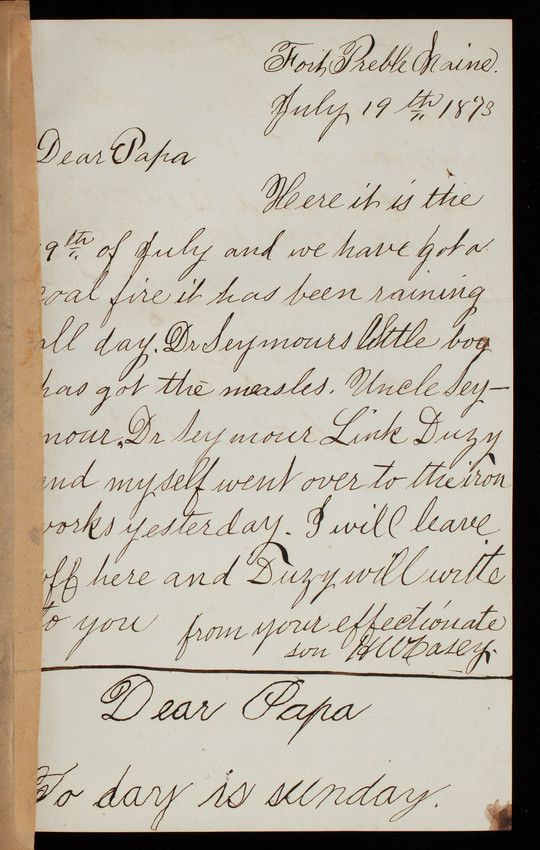 Fort Preble Maine.
July 19th 1873
Dear Papa
Here it is the
19th of July and we have got a
coal fire it has been raining
all day. Dr Seymours little boy
has got the measles. Uncle Sey-
mour, Dr Seymour Link Duzy
and myself went over to the iron
works yesterday. I will leave
off here and Duzy will write
to you from your effectionate
son H W Casey.
Dear Papa
To day is sunday.